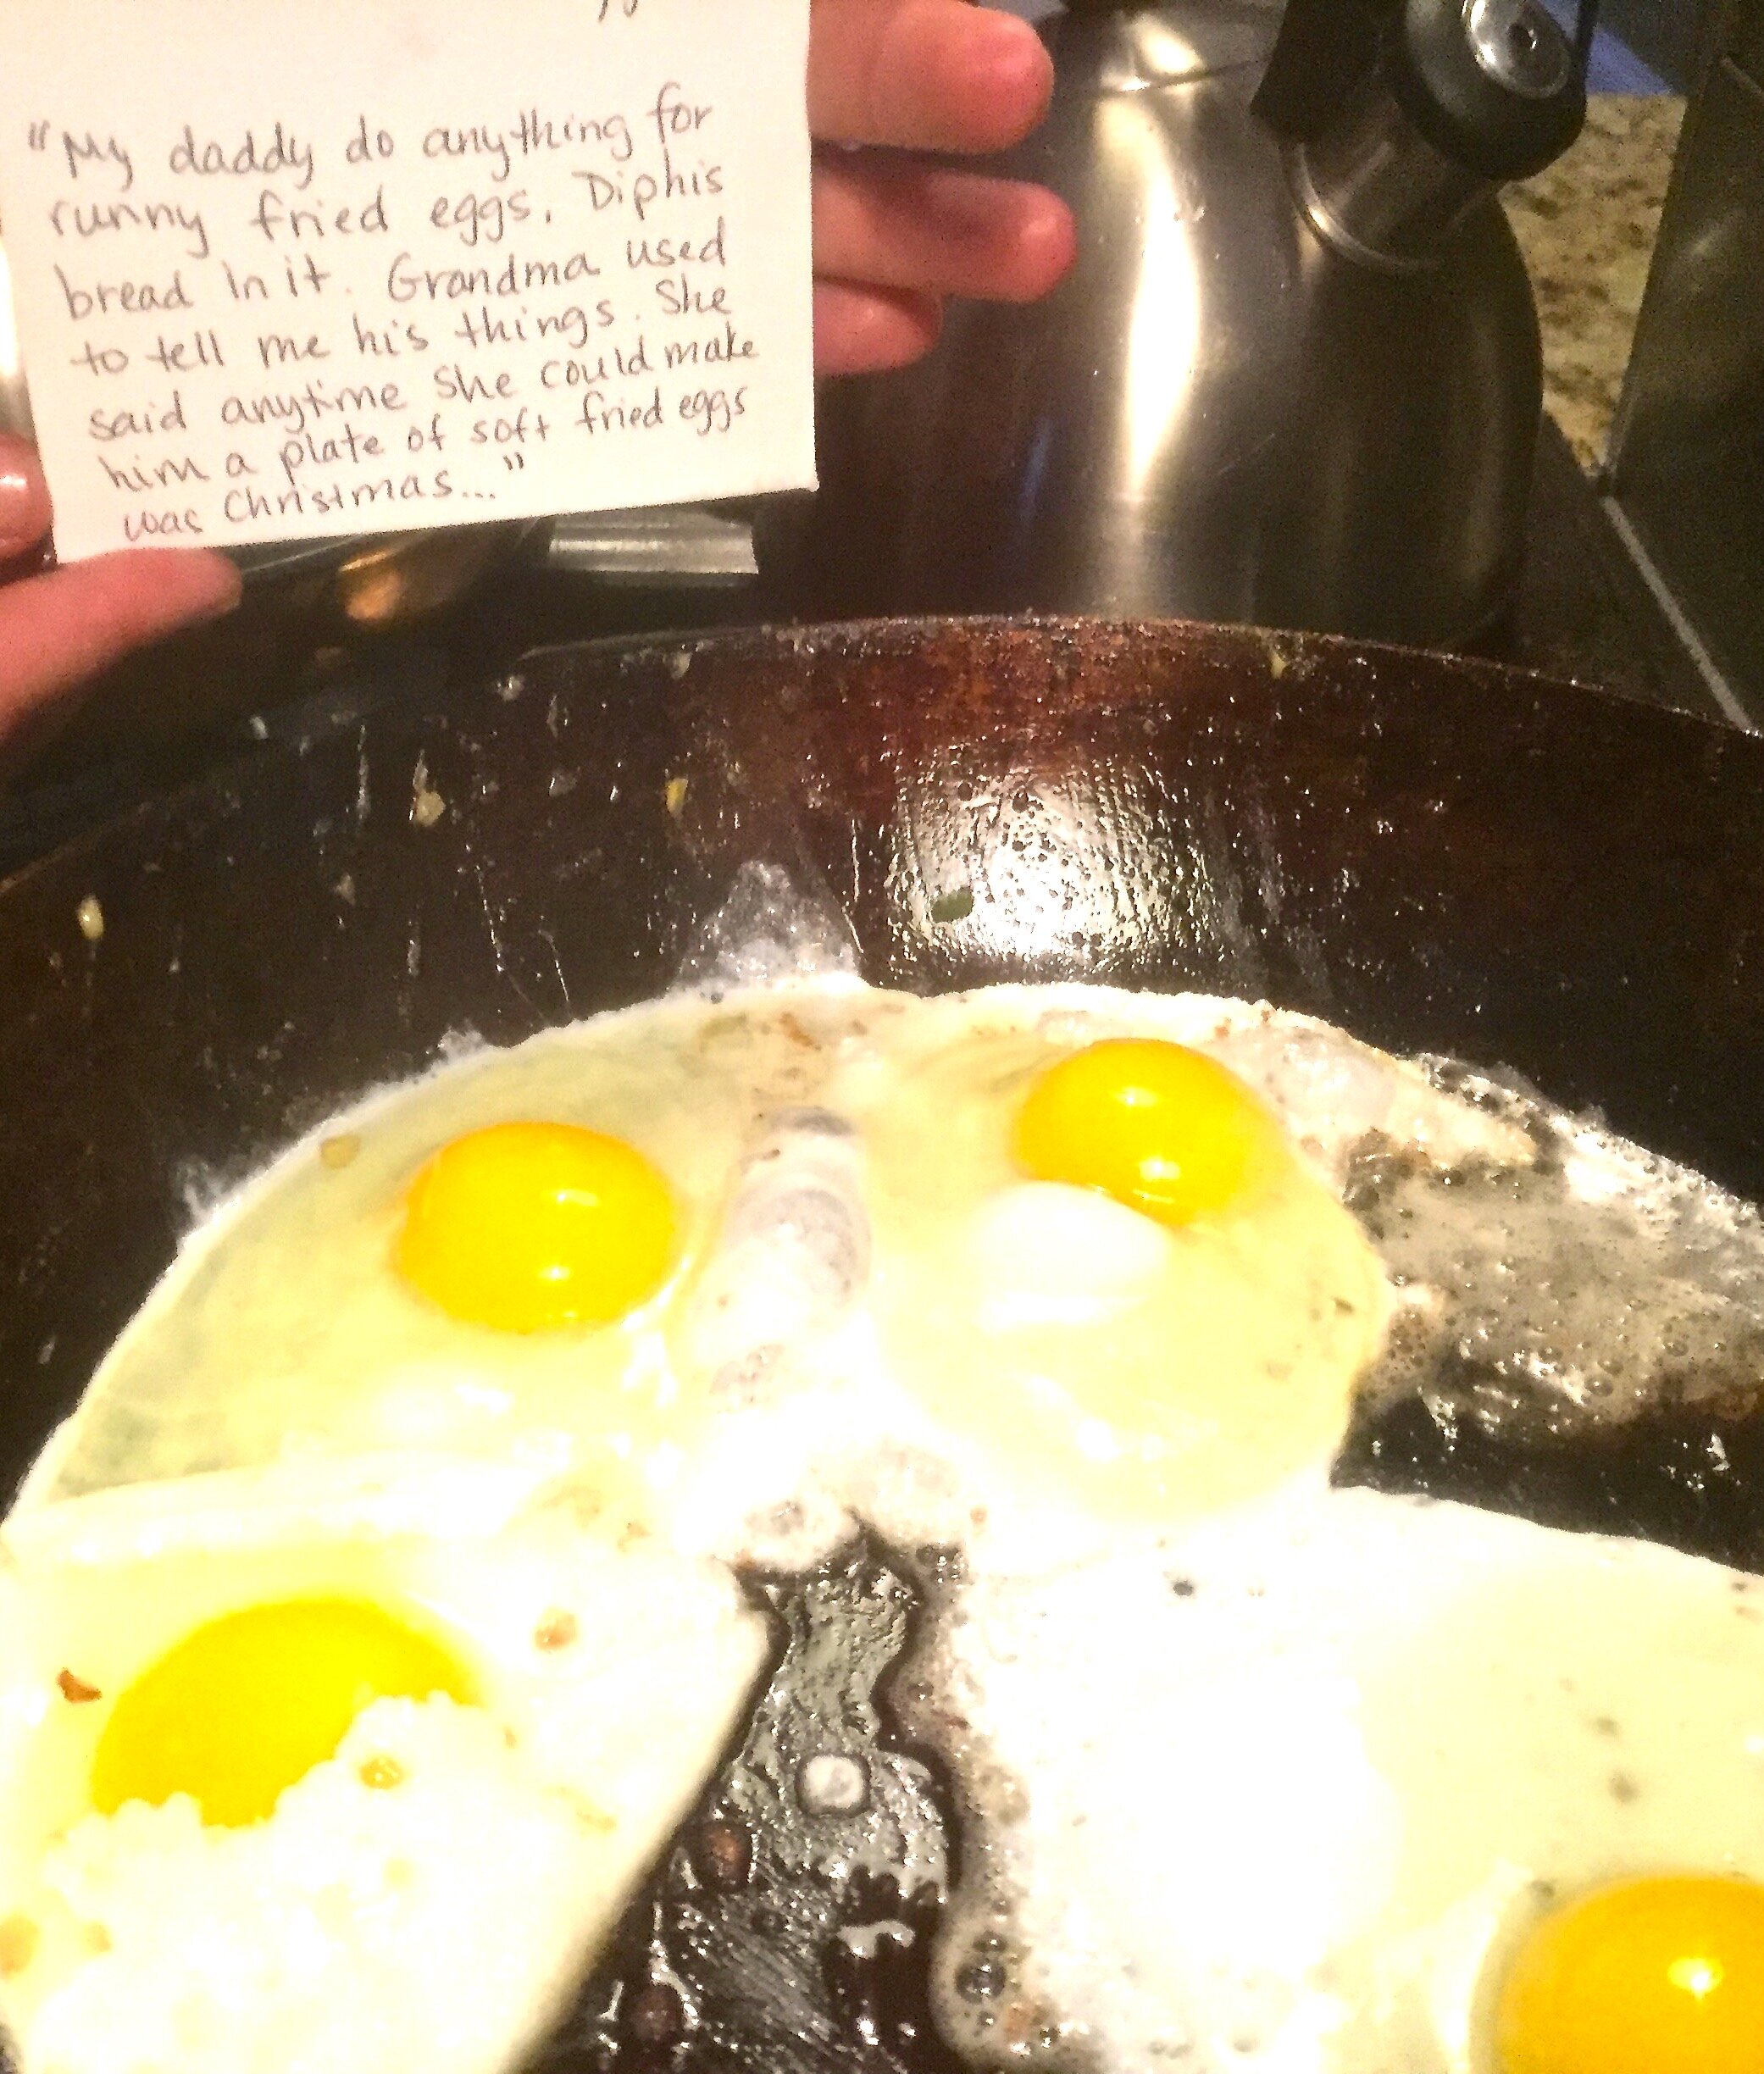 "My daddy do anything for
runny fried eggs. Diphis
bread in it. Grandma used
to tell me his things. She
said anytime she could make
him a plate of soft fried eggs
was Christmas..."